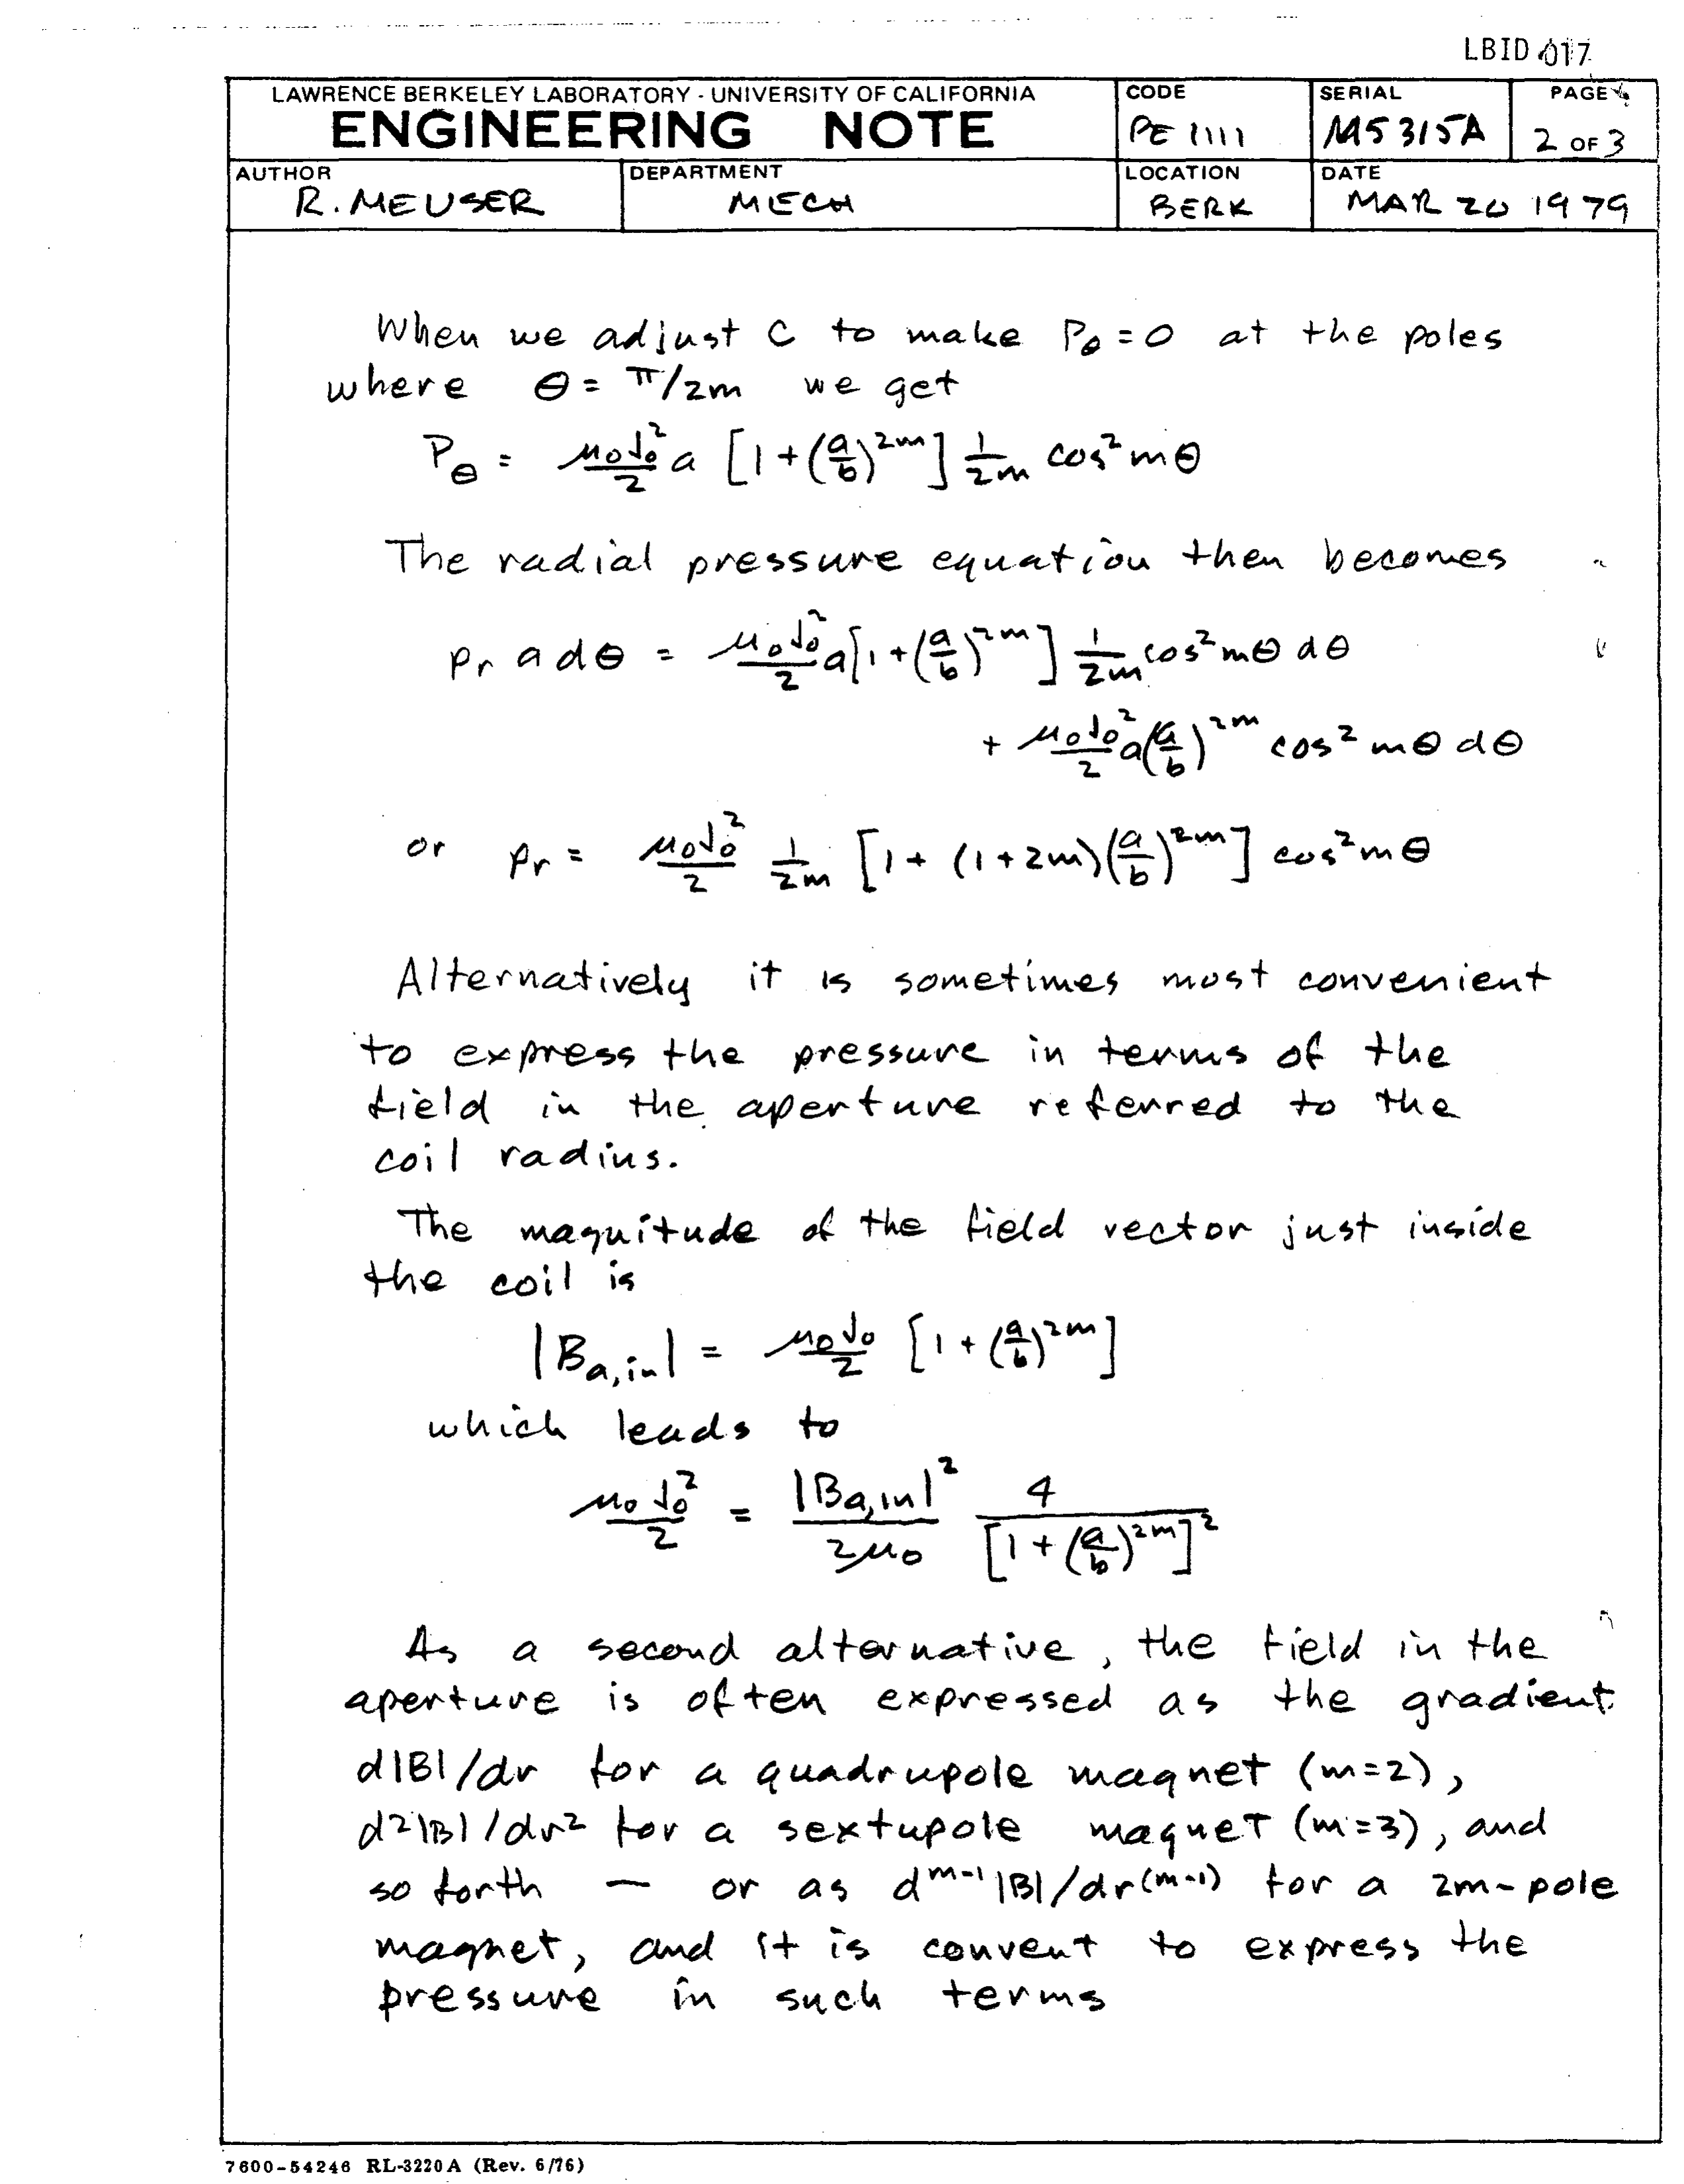 LBID 017
LAWRENCE BERKELEY LABORATORY - UNIVERSITY OF CALIFORNIA
ENGINEERING NOTE
CODE
PE 1111
SERIAL
M5315A
PAGE
2 OF 3
AUTHOR
R. MEUSER
DEPARTMENT
MECH
LOCATION
BERK
DATE
MAR 20 1979
When we adjust C to make P_θ = 0 at the poles
where θ = π/2m we get
P_θ = μ₀J₀²/2 a [1 + (a/b)^2m] 1/2m cos² mθ
The radial pressure equation then becomes
p_r a dθ = μ₀J₀²/2 a [1 + (a/b)^2m] 1/2m cos² mθ dθ
+ μ₀J₀²/2 a (a/b)^2m cos² mθ dθ
or p_r = μ₀J₀²/2 1/2m [1 + (1+2m)(a/b)^2m] cos² mθ
Alternatively it is sometimes most convenient
to express the pressure in terms of the
field in the aperture referred to the
coil radius.
The magnitude of the field vector just inside
the coil is
|B_a,in| = μ₀J₀/2 [1 + (a/b)^2m]
which leads to
μ₀J₀²/2 = |B_a,in|²/2μ₀ 4/[1 + (a/b)^2m]²
As a second alternative, the field in the
aperture is often expressed as the gradient
d|B|/dr for a quadrupole magnet (m=2),
d²|B|/dr² for a sextupole magnet (m=3), and
so forth — or as d^m-1|B|/dr^(m-1) for a 2m-pole
magnet, and it is convent to express the
pressure in such terms
7600-54246 RL-3220A (Rev. 6/76)